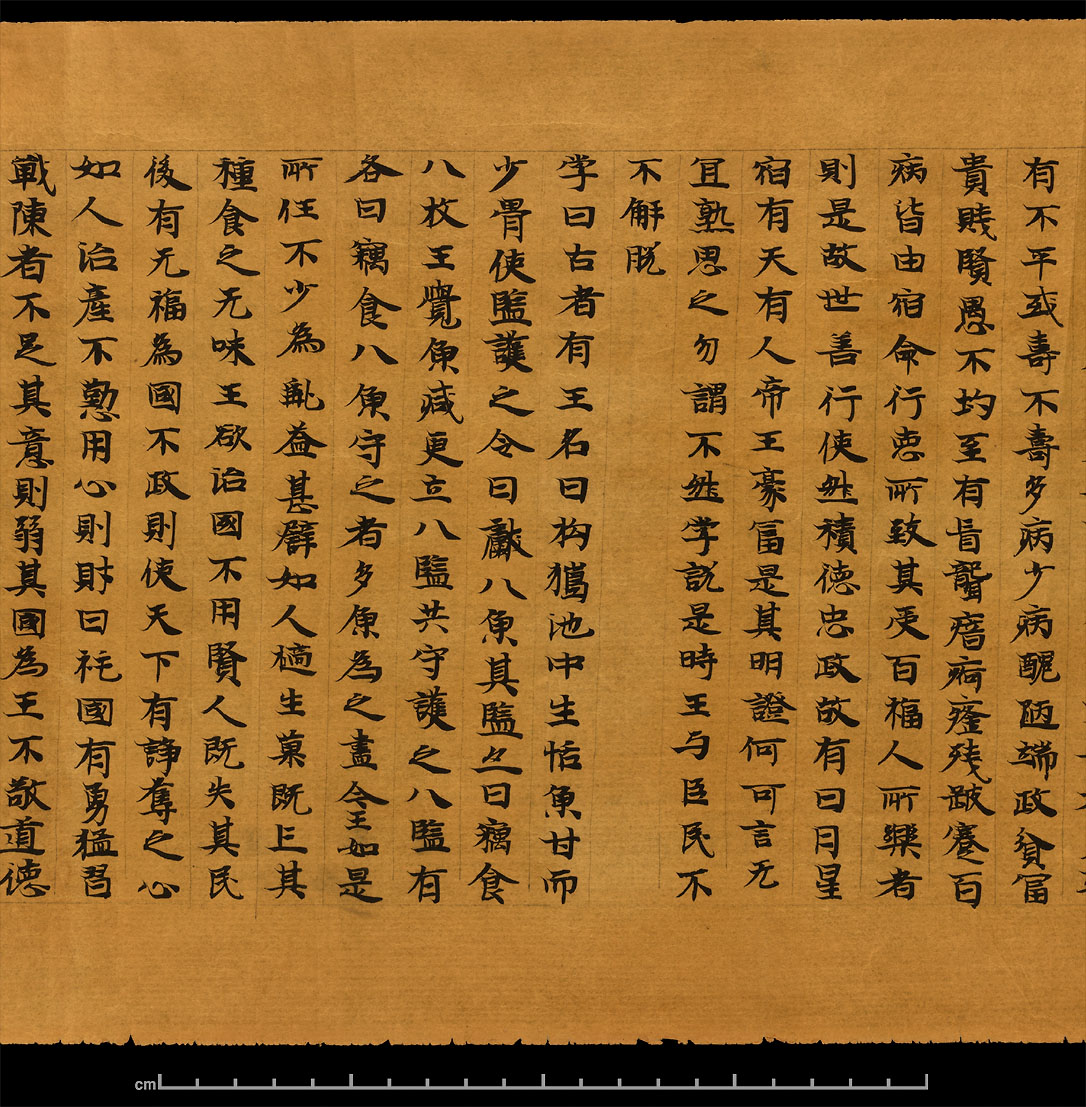 有不平或壽不壽多病少病醜陋端政貧冨
貴賤賢愚不均至有盲聾瘖瘂癃残跛蹇百
病皆由宿命行悪所致其更百福人所樂者
則是故世善行使然積德忠政故有日月星
宿有天有人帝王豪冨是其明證何可言无
冝熟思之勿謂不然孛說是時王与臣民不
不解脫
孛曰古者有王名曰狗獵池中生恬魚甘而
少骨使監護之令日獻八魚其監亦日竊食
八枚王覺魚減更立八監共守護之八監有
各日竊食八魚守之者多魚為之盡今王如是
所任不少為亂益甚譬如人擿生菓既亡其
種食之无味王欲治國不用賢人既失其民
後有无福為國不政則使天下有諍奪之心
如人治產不懃用心則財日耗國有勇猛習
戰陳者不足其意則弱其國為王不敬道德